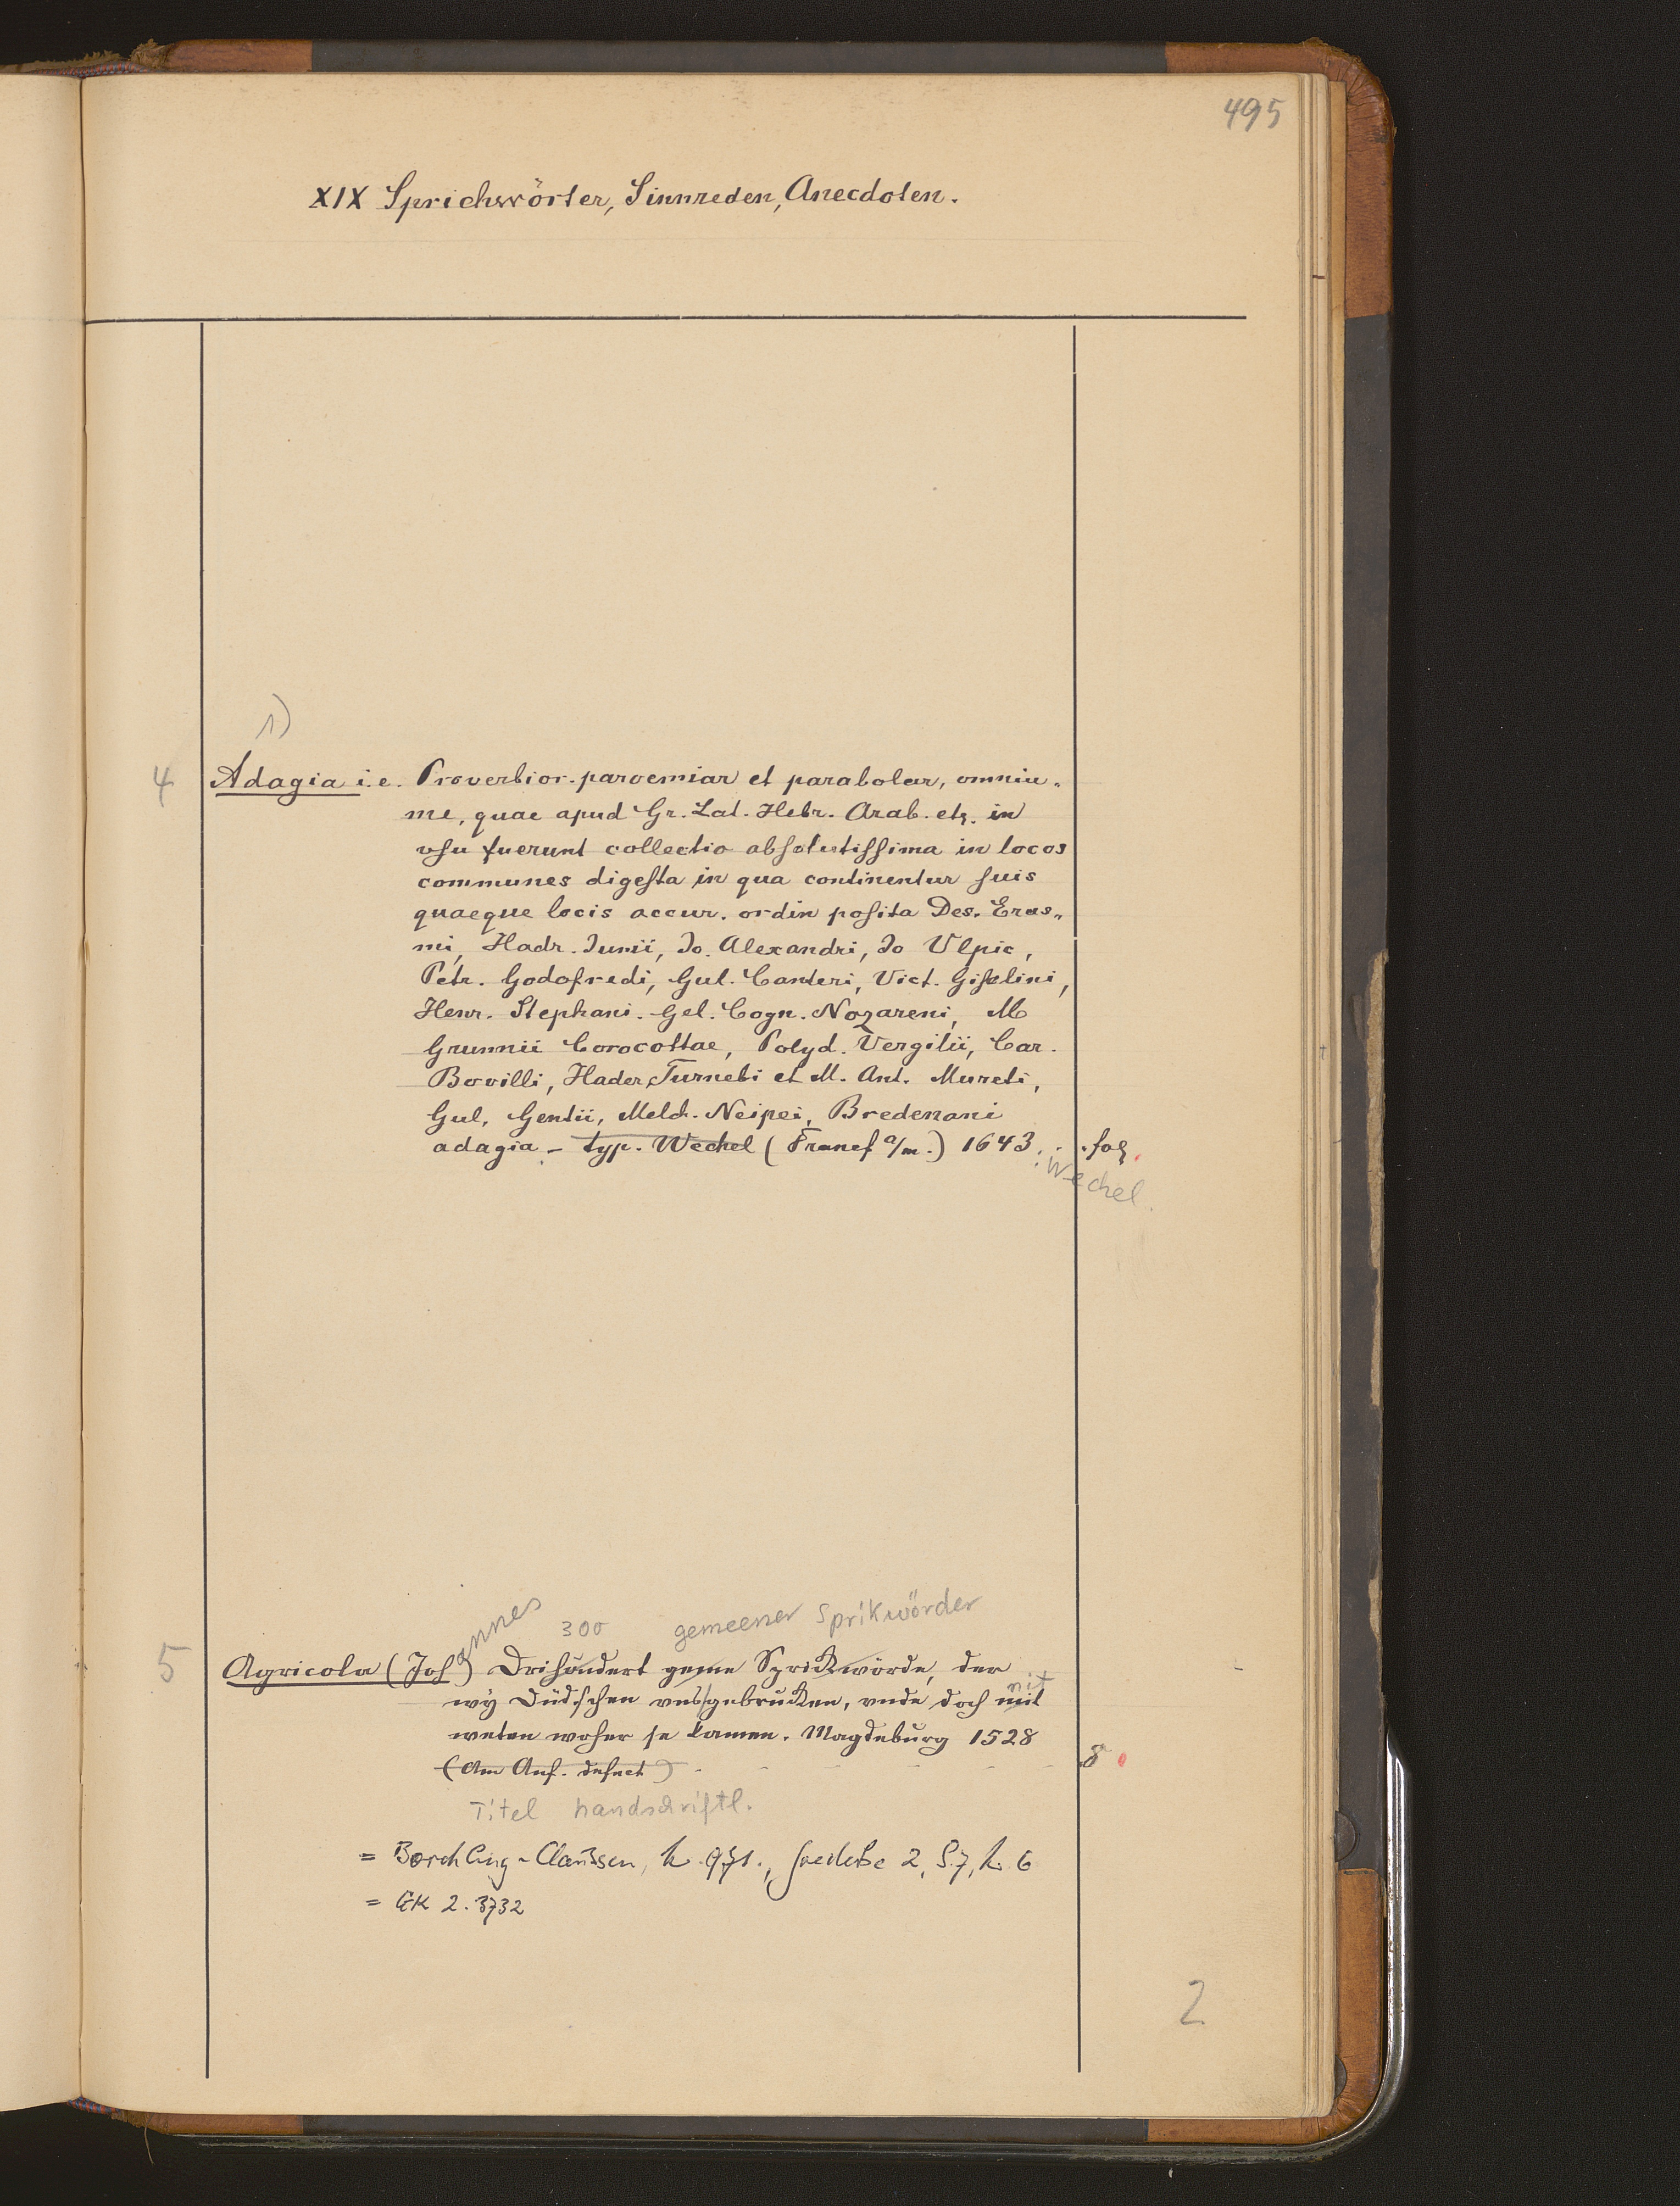 495
XIX Sprichwörter, Sinnreden, Anecdoten.
1)
4 Adagia i.e. Proverbior. paroemiar et parabolar, omniu-
me, quae apud Gr. Lat. Hebr. Arab. etz. in
vsu fuerunt collectio absolutissima in locos
communes digesta in qua continentur suis
quaeque locis accur. ordin posita Des. Eras-
mi, Hadr. Junii, Jo. Alexandri, Jo Vlpic,
Petr. Godofredi, Gul. Canteri, Vict. Giselini,
Henr. Stephani. Gel. Cogn. Nozareni, M
Grunnii Corocottae, Polyd. Vergilii, Car.
Bovilli, Hader Turnebi et M. Ant. Mureti,
Gul. Gentii, Melch. Neipei, Bredenani
adagia - typ. Wechel (Francf a/m.) 1643. . . fol.
Wechel.
annes 300 gemeener Sprikwörder
5 Agricola (Joh) Drihundert geme Sprickwörde, der
nit
wÿ Düdschen vns gebrucken, vnde doch mit
weten woher se kamen. Magdeburg 1528
(Am Anf. defect) - - - - - 8
Titel handschriftl.
= Borchling-Claussen, 971., Goedeke 2, S. 7, 6
= GK 2.3732
2